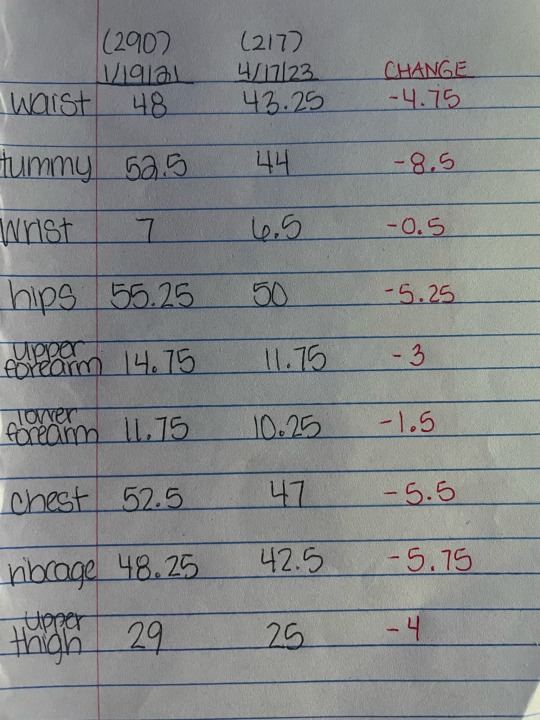 (290) (217)
1/19/21 4/17/23 CHANGE
waist 48 43.25 -4.75
tummy 52.5 44 -8.5
wrist 7 6.5 -0.5
hips 55.25 50 -5.25
upper
forearm 14.75 11.75 -3
lower
forearm 11.75 10.25 -1.5
chest 52.5 47 -5.5
ribcage 48.25 42.5 -5.75
upper
thigh 29 25 -4